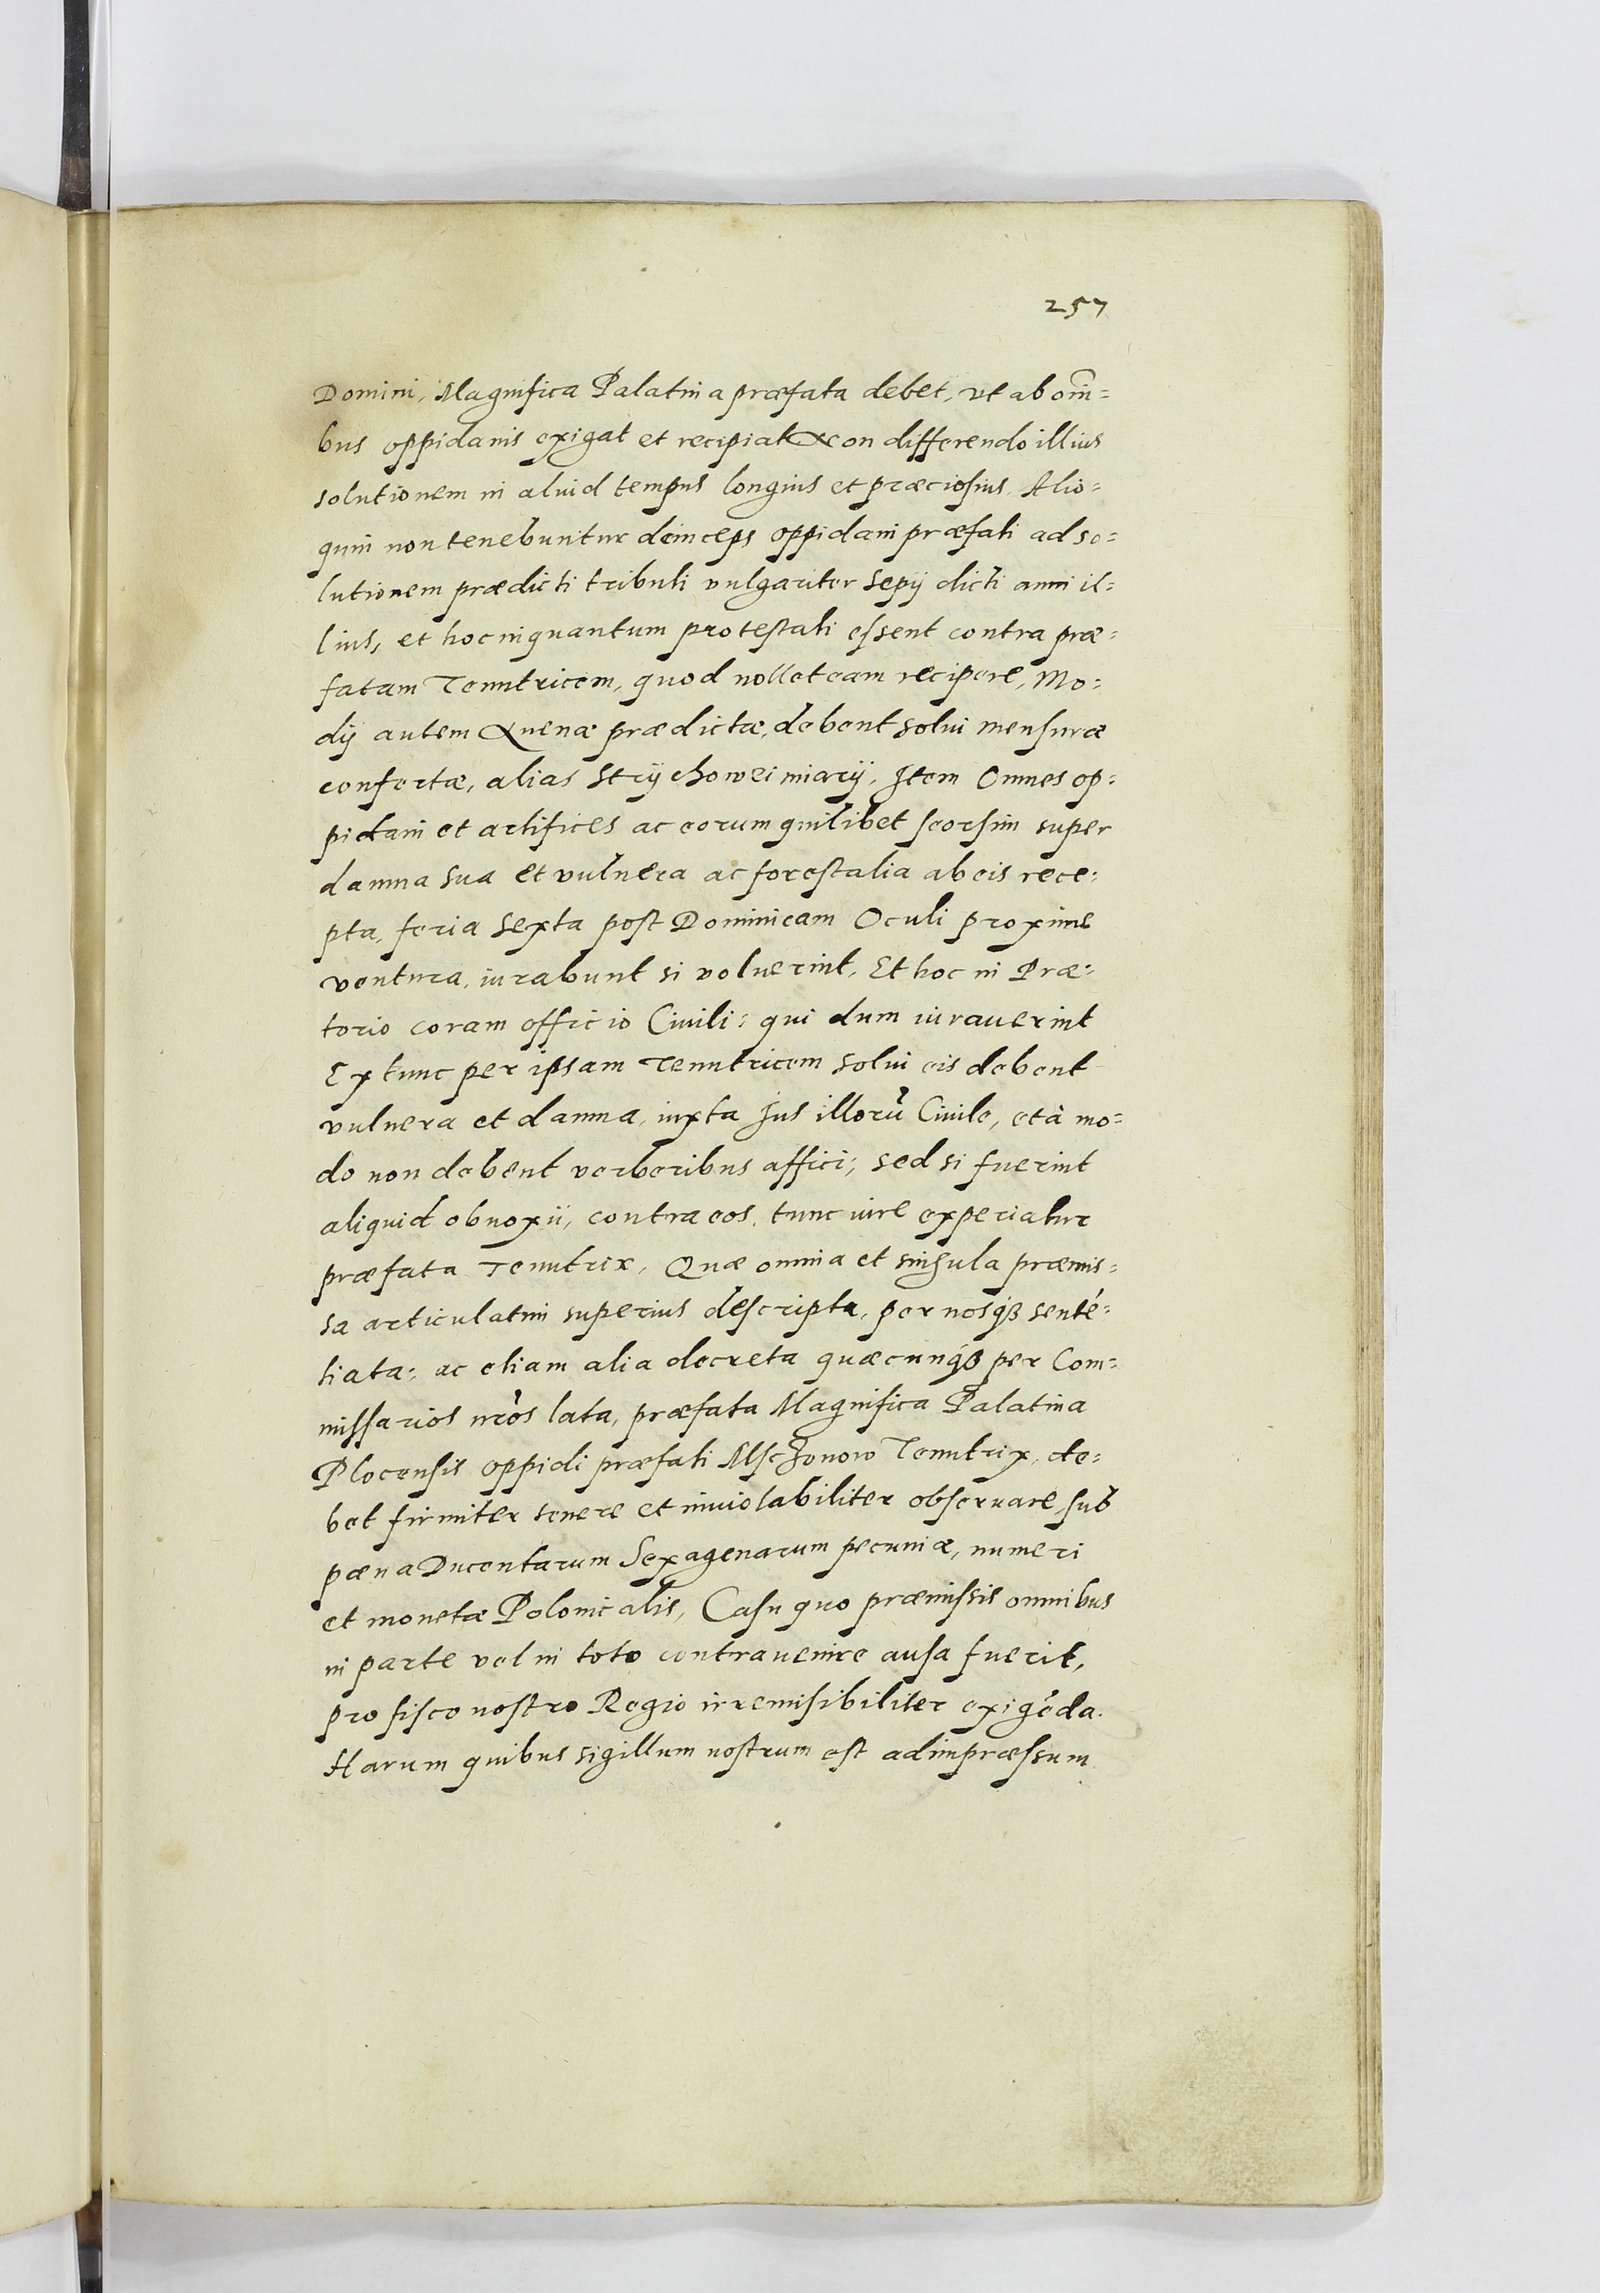 257
Domini, Magnifica Palatina præfata debet, vt ab om̃i=
bus oppidanis exigat et recipiat non differendo illius
solutionem in aluid tempus longius et præciosius. Alio=
quin non tenebuntur deinceps oppidani præfati ad so=
lutionem prædicti tributi vulgariter sepÿ dicti anni il=
lius, et hoc inquantum protestati essent contra præ=
fatam Tenutricem, quod nollet eam recipere, Mo=
dÿ autem Auenæ prædictæ, debent solui mensuræ
confertæ, alias Strÿchowei miarÿ. Item Omnes op=
pidani et artifices ac eorum quilibet seorsim super
damna sua et vulnera ac forestalia ab eis rece=
pta, feria sexta post Dominicam Oculi proxime
ventura, iurabunt si voluerint, Et hoc in Præ=
torio coram officio Ciuili: qui dum iurauerint
Extunc per ipsam Tenutricem solui eis debent
vulnera et damna, iuxta Jus illorũ Ciuile, et à mo=
do non debent verberibus affici; sed si fuerint
aliquid obnoxii, contra eos, tunc iure experiatur
præfata Tenutrix. Quæ omnia et singula præmis=
sa articulatim superius descripta, per nosq3 senté=
tiata: ac etiam alia decreta quæcunq3 per Com=
missarios nr̃os lata, præfata Magnifica Palatina
Plocensis oppidi præfati Mschonow Tenutrix, de=
bet firmiter tenere et inuiolabiliter obseruare, sub
pœna Ducentarum Sexagenarum pecuniæ, numeri
et monetæ Polonicalis, Casu quo præmissis omnibus
in parte vel in toto contrauenire ausa fuerit,
pro fisco nostro Regio irremisibiliter exigẽda.
Harum quibus sigillum nostrum est adimpræssum